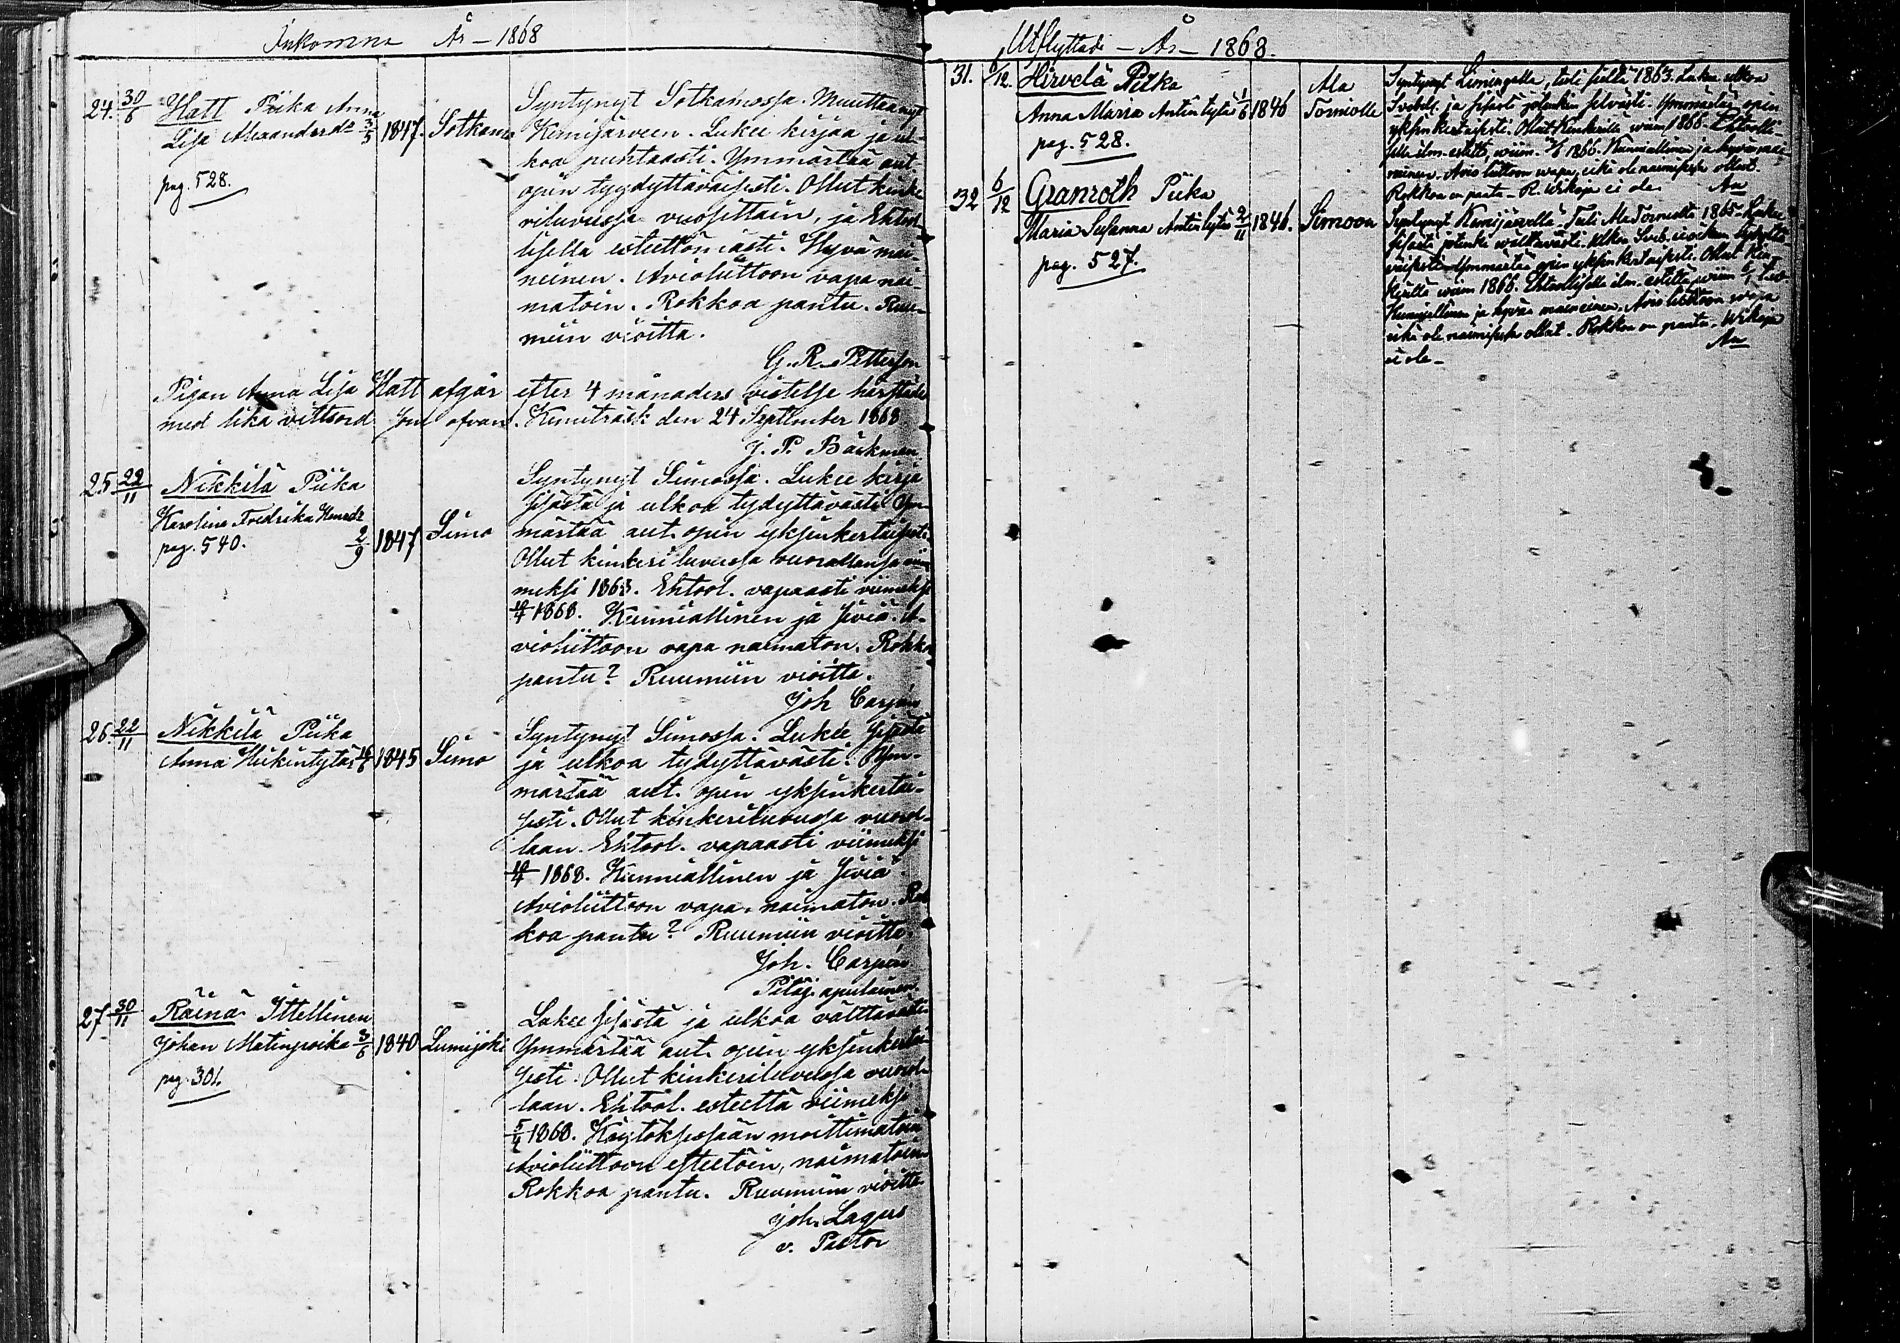 Inkomne År - 1868
24. 30/6 Hatt Piika Anna
Lisa Alexandersdr 3/3 1847. Sotkamo
pag. 528.
Syntynyt Sotkamossa. Muuttanut
Kemijärveen. Lukee kirjaa ja ul-
koa puhtaasti. Ymmärtää aut.
opin tyydyttäväisesti. Ollut kinke
riluvussa vuosittain, ja Ehtool-
lisella esteettömästi. Hyvä mai-
neinen. Avioliittoon vapa nai-
matoin. Rokkoa pantu. Ruu-
miin vioitta.
G. R. Petterson
Pigan Anna Lisa Hatt afgår efter 4 månaders vistelse härstädes
med lika vittsord som ofvan. Kemiträsk den 24 September 1868
J. P. Bäckman
25. 22/11 Nikkilä Piika
Karolina Fredrika Henrdr
pag. 540. 2/9 1847 Simo
Syntynyt Simossa. Lukee kirja
sisästä ja ulkoa tydyttävästi Ym-
märtää aut. opin yksinkertaisesti.
Ollut kinkeri luvussa vuorallansa vii
meksi 1868. Ehtool. vapaasti viimeksi
1868. Kunniallinen ja Siviä. A-
violiittoon vapa naimaton. Rokko
pantu? Ruumiin vioitta.
Joh Carpén
26. 22/11 Nikkilä Piika
Anna Heikintytär 1845 Simo
Syntynyt Simossa. Lukee Sisästä
ja ulkoa tydyttävästi. Ym-
märtää aut. opin yksinkertai-
sesti. Ollut kinkeriluvussa vuorol-
laan. Ehtool. vapaasti viimeksi
1868. Kunniallinen ja Siviä
Avioliittoon vapa, naimaton. Rok
koa pantu? Ruumiin vioitta.
Joh. Carpén
Pitäj. apulainen.
27. 30/11 Räinä Ittellinen
Johan Matinpoika 3/6 1840 Lumijoki
pag. 301.
Lukee sisästä ja ulkoa välttävästi
Ymmärtää aut. opin yksinkertai
sesti. Ollut kinkeriluvussa vuorol-
laan. Ehtool. esteettä viimeksi
5/4 1868. Käytöksessään moittimatoin
Avioliittoon esteetöin, naimatoin
Rokkoa pantu. Ruumiin vioitta.
Joh. Lagus
v. Pastor
Utflyttade - År - 1868.
31. 6/12. Hirvelä Piika
Anna Maria Antintytär 1/6 1846 Ala
Torniolle
pag. 528.
Syntynyt Limingalla, tuli sieltä 1863. Lukee ulkoa
Svebel. ja sisästä jotenkin selvästi. Ymmärtää opin
yksinkertaisesti. Ollut Kinkerillä wiim 1866. Ehtoolli-
sella ilm. estettä, wiim. 1866. Kunniallinen ja hyvä mai-
neinen. Avio liittoon wapa, eikä ole naimisissa ollut.
Rokkoa on pantu. R. Wikoja ei ole. Au
32 6/12 Granroth Piika
Maria Susanna Antintytär 2/11 1846. Simoon
pag. 527.
Syntynyt Kemijärvellä. Tuli Ala Torniolta 1865. Lukee
sisästä jotenkin wälttävästi.
Ymmärtää opin yksinkertaisesti. Ollut Kin-
kerillä wiim 1866. Ehtoollisella ilm. estettä, wiim
Kunniallinen ja hyvä maineinen. Avio liittoon wapa
eikä ole naimisissa ollut. Rokkoa on pantu. Wikoja
ei ole. Au